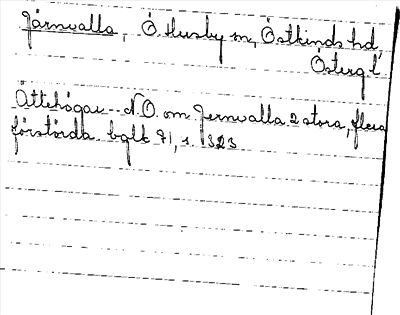 Järnvalla, Ö. Husby sn, Östkinds hd,
Österg l.
Ättehögar N.O. om Jernvalla 2 stora, flera
förstörda. bglt 71, s. 1323